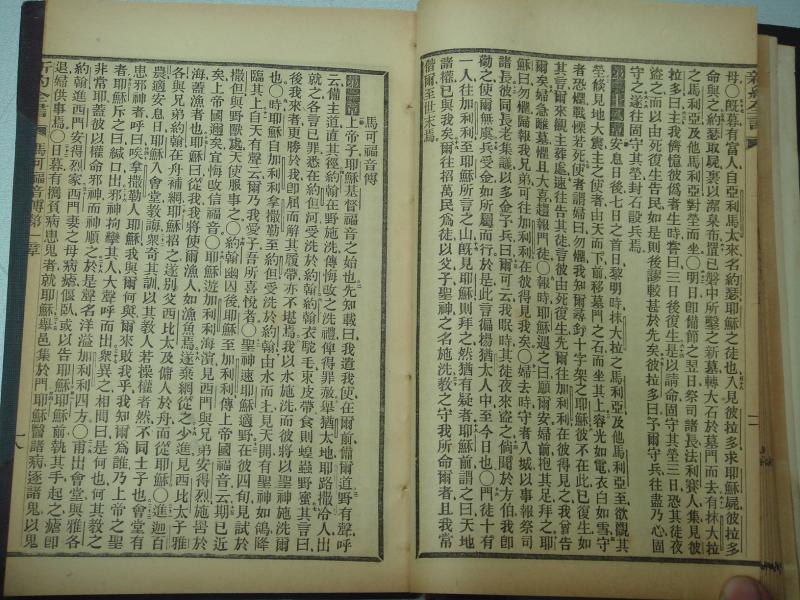 新約全書
母○既暮有富人自亞利馬太來名約瑟耶穌之徒也入見彼拉多求耶穌屍彼拉多
命與之約瑟取屍裹以潔枲布置己磐中所鑿之新墓轉大石於墓門而去有抹大拉
之馬利亞及他馬利亞對塋而坐○明日即備節之翌日祭司諸長法利賽人集見彼
拉多曰主我儕憶彼偽者生時嘗曰三日後復生是以請命固守其塋三日恐其徒夜
盜之而以由死復生告民如是則後謬較甚於先矣彼拉多曰予爾守兵往盡乃心固
守之遂往固守其塋封石設兵焉
第二十八章安息日後七日之首日黎明時抹大拉之馬利亞及他馬利亞至欲觀其
塋倏見地大震主之使者由天而下前移墓門之石而坐其上容光如電衣白如雪守
者恐懼戰慄若死使者謂婦曰勿懼我知爾尋釘十字架之耶穌彼不在此已復生如
其言爾來觀主葬處速往告其徒言彼由死復生先爾往加利利在彼得見之我曾告
爾矣婦急離墓懼且大喜趨報門徒○報時耶穌遇之曰願爾安婦前抱其足拜之耶
穌曰勿懼歸報我兄弟可往加利利在彼得見我矣○婦去時守者入城以事報祭司
諸長彼同長老集議以多金予兵曰爾可云我眠時其徒夜來盜之倘聞於方伯我即
勸之使爾無虞兵受金如所屬而行於是此言徧揚猶太人中至今日也○門徒十有
一人往加利利至耶穌所言之山既見耶穌則拜之然猶有疑者耶穌前謂之曰天地
諸權已與我矣爾往招萬民為徒以父子聖神之名施洗教之守我所命爾者且我常
偕爾至世末焉
馬可福音傳
第一章上帝子耶穌基督福音之始也先知載曰我遣我使在爾前備爾道野有聲呼
云備主道直其徑約翰在野施洗傳悔改之洗禮俾得罪赦舉猶太地耶路撒冷人出
就之各言已罪悉在約但河受洗於約翰約翰衣駝毛束皮帶食則蝗蟲野蜜其言曰
後我來者更勝於我即屈而解其履帶亦不堪焉我以水施洗而彼將以聖神施洗爾
也○時耶穌自加利利拿撒勒至約但受洗於約翰由水而上見天開有聖神如鴿降
臨其上自天有聲云爾乃我愛子吾所喜悅者○聖神速耶穌適野在彼四旬見試於
撒但與野獸處天使服事之○約翰幽囚後耶穌至加利利傳上帝國福音云期已近
矣上帝國邇矣宜悔改信福音○耶穌遊加利利海濱見西門與兄弟安得烈施罟於
海蓋漁者也耶穌曰從我我將使爾漁人如漁魚焉遂棄網從之少進見西比太子雅
各與兄弟約翰在舟補網耶穌招之遂別父西比太及傭人於舟而從耶穌○進迦百
農適安息日耶穌入會堂教誨眾奇其訓以其教人若操權者然不同士子也會堂有
患邪神者呼曰唉拿撒勒人耶穌我與爾何與爾來敗我乎我知爾為誰乃上帝之聖
者耶穌斥之曰緘口出邪神拘攣其人大聲呼而出眾異之相問曰是何也何其教之
非常耶蓋彼以權命邪神而神順之於是聲名洋溢加利利四方○甫出會堂與雅各
約翰進西門安得烈家西門妻之母病瘧偃臥或以告耶穌耶穌前執其手起之瘧即
退婦供事焉○日暮有攜負病患鬼者就耶穌舉邑集於門耶穌醫諸病逐諸鬼以鬼
新約全書 馬可福音傳第一章 十八